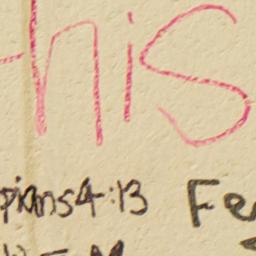 his
pians4:13 Fe